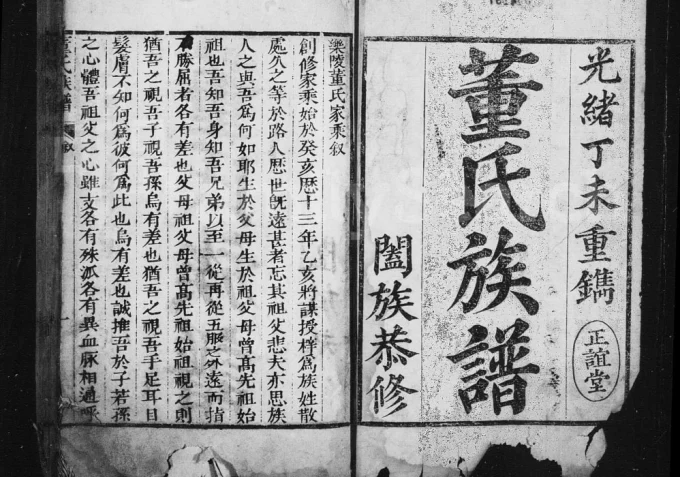 光緒丁未重鐫
正誼堂
董氏族譜
闔族恭修
樂陵董氏家乘叙
創修家乘始於癸亥歷十三年乙亥將謀授梓為族姓散
處久之等於路人歷世旣遠甚者忘其祖父悲夫亦思族
人之與吾為何如耶生於父母生於祖父母曾高先祖始
祖也吾知吾身知吾兄弟以至一從再從五服之外遠而指
不勝屈者各有差也父母祖父母曾高先祖始祖視之則
猶吾之視吾子視吾孫烏有差也猶吾之視吾手足耳目
髮膚不知何為彼何為此也烏有差也誠推吾於子若孫
之心體吾祖父之心雖支各有殊派各有異血脉相通呼
董氏族譜 叙